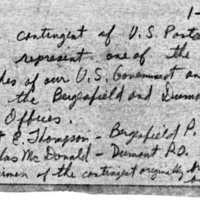 1-
contingent of U.S. Posta
represent one of the
des of our U.S. Government an
the Bergenfield and Dumont
Offices.
E. Thompson - Bergenfield P.
las McDonald - Dumont P.O.
of the contingent originally